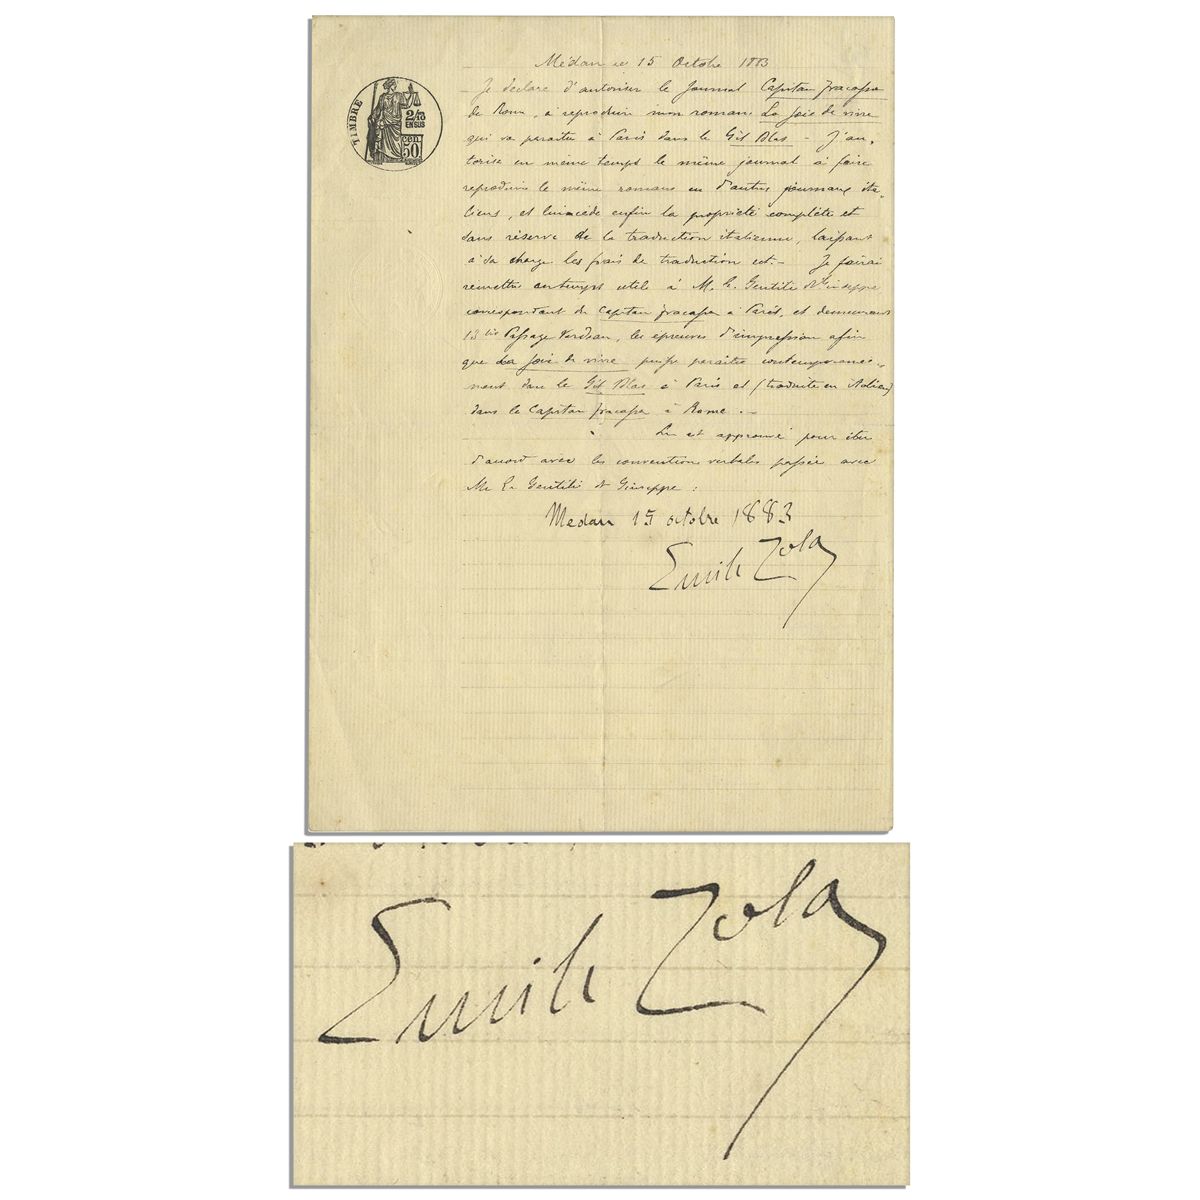 Médan ce 15 Octobre 1883
TIMBRE
2/10
EN SUS
50
CEN
Je déclare d'autoriser le Journal Capitan Fracassa
de Rome, à reproduire mon roman La Joie de vivre
qui va paraître à Paris dans le Gil Blas - J'au,
torise en même temps le même journal à faire
reproduire le même romans en d'autres journaux ita,
liens, et lui cède enfin la propriété complète et
sans réserve de la traduction italienne, laissant
à sa charge les frais de traduction ect. - Je ferai
remettre en temps utile à M. Gentili Giuseppe
correspondant du Capitan Fracassa à Paris, et demeurant
13 bis Passage Verdeau, les épreuves d'impression afin
que La Joie de vivre puisse paraître contemporané,
ment dans le Gil Blas à Paris et (traduite en Italien)
dans le Capitan Fracassa à Rome. -
Lu et approuvé pour être
d'accord avec les convention verbales passée avec
Mr Gentili Giuseppe :
Medan 15 octobre 1883
Emile Zola
Emile Zola